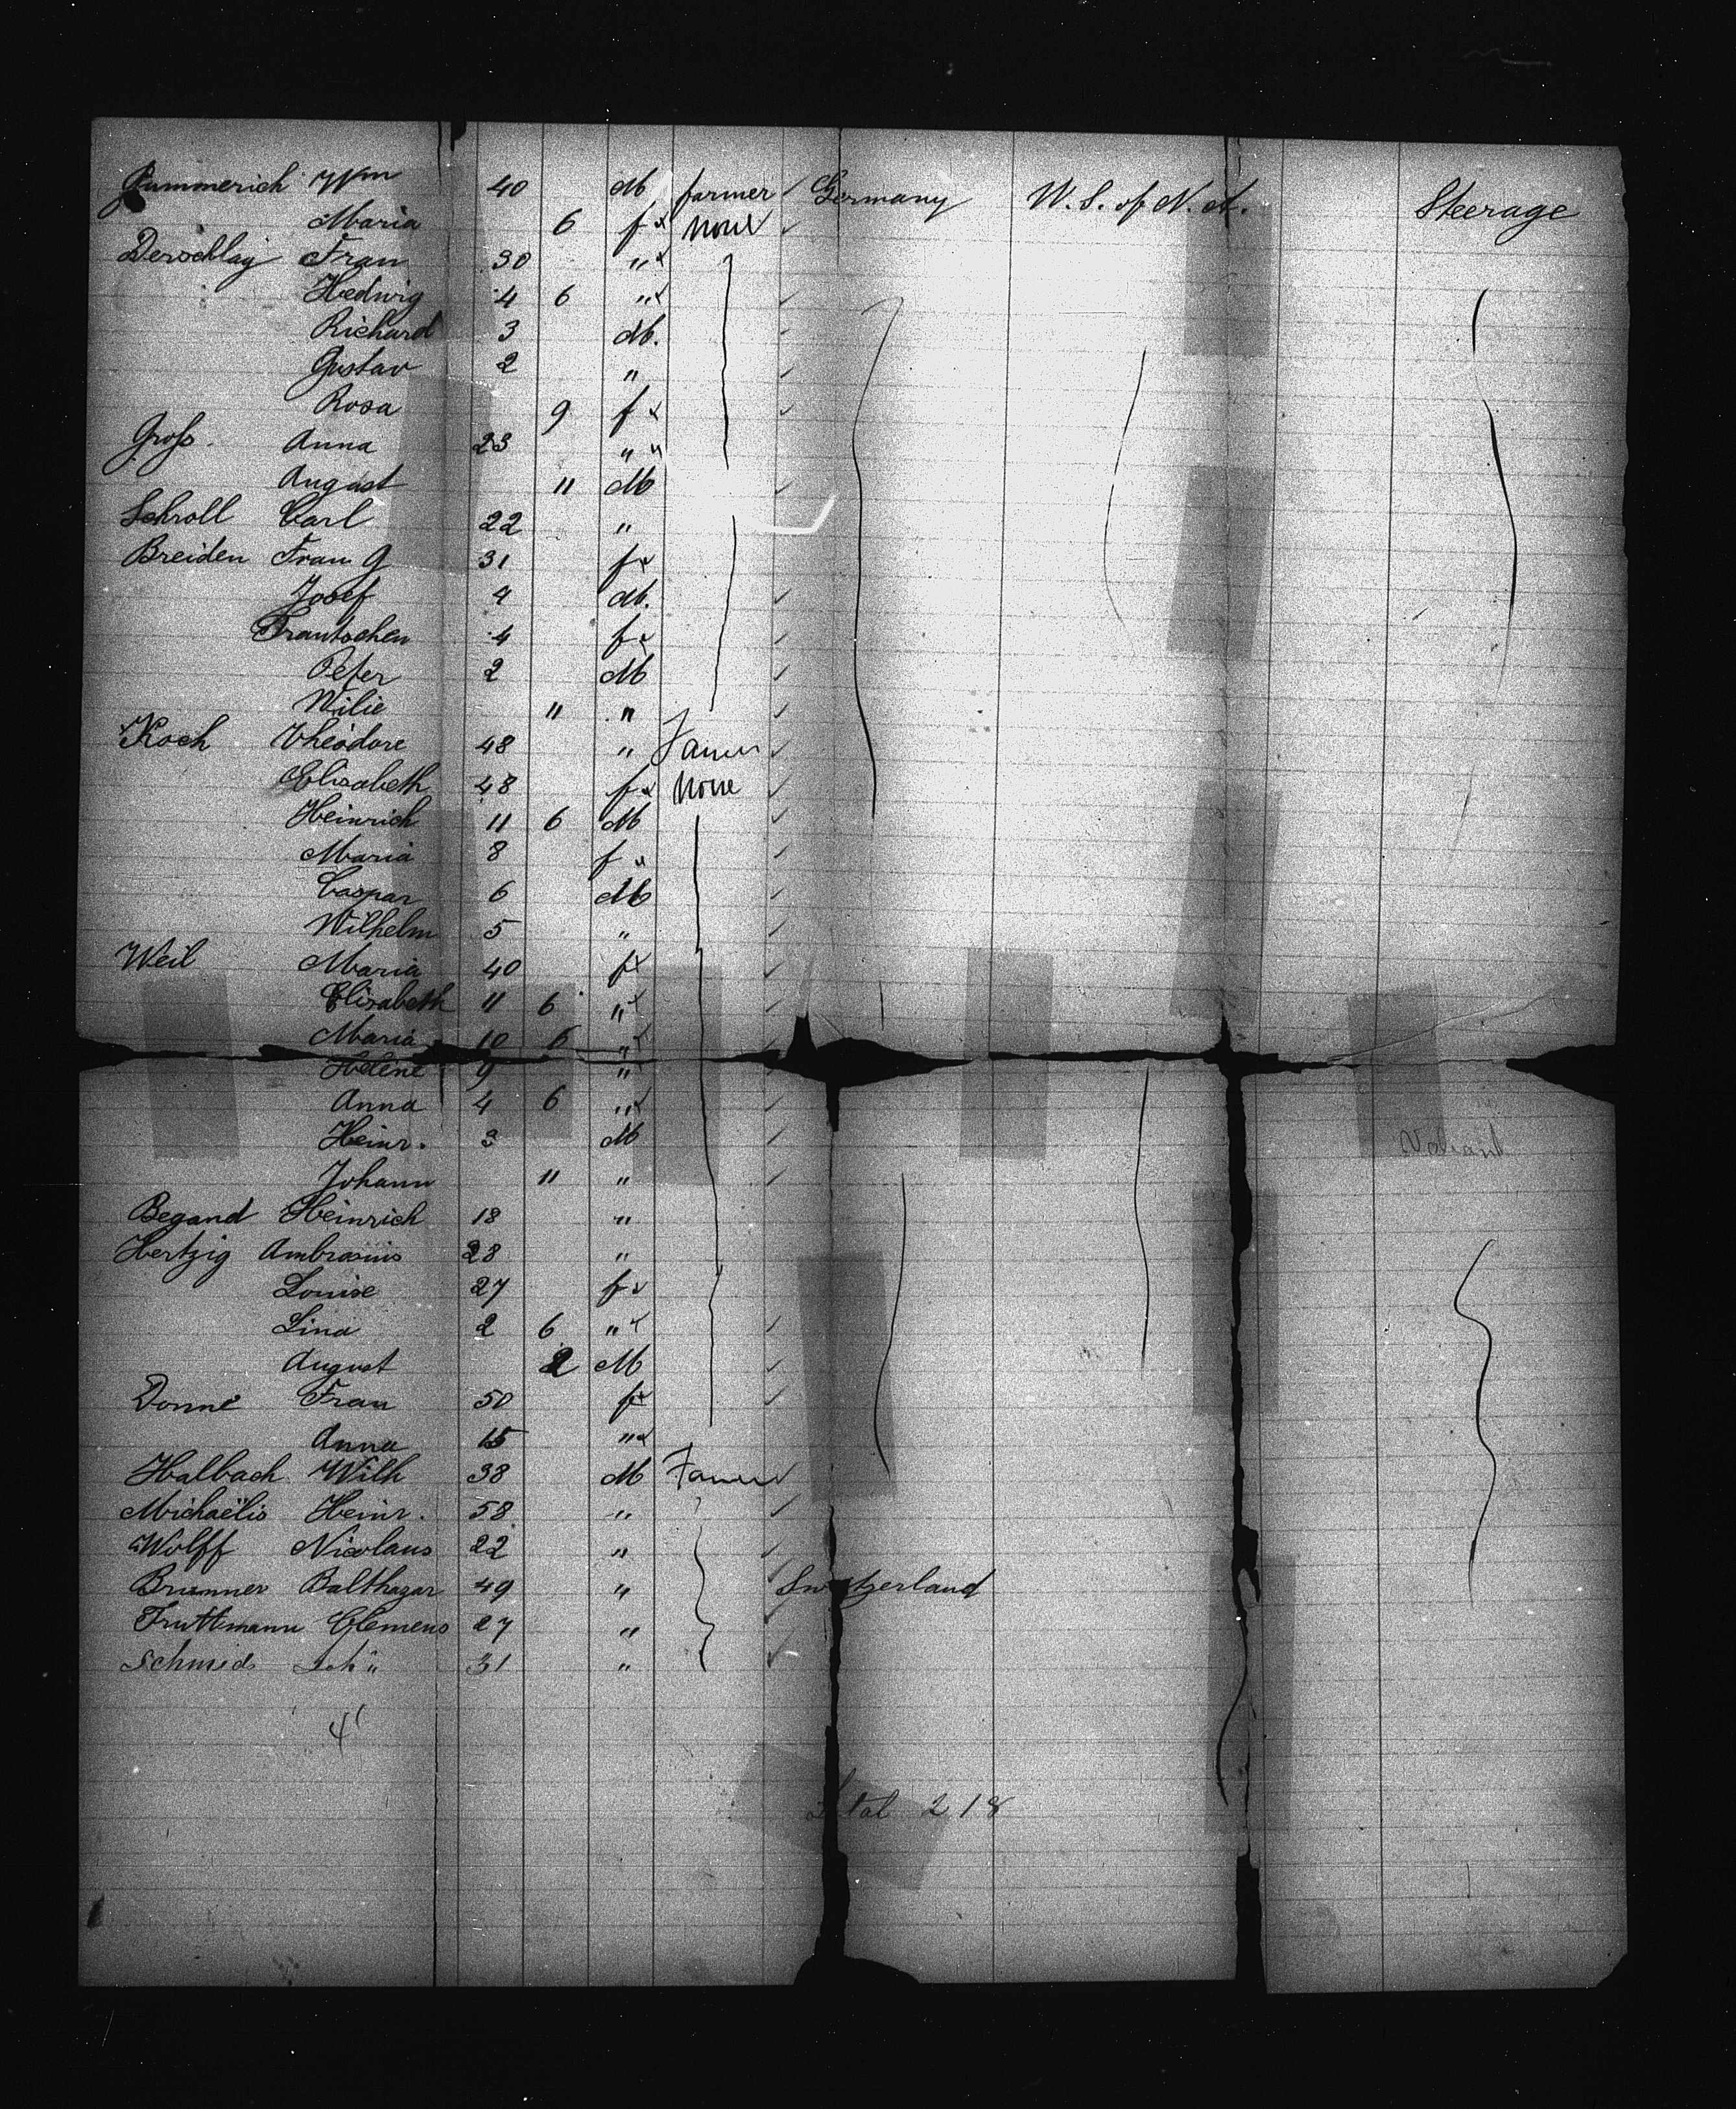 Pummerich Wm 40 M farmer Germany U.S. of N.A. Steerage
Maria 6 f None
Derschlag Frau 30 "
Hedwig 4 6 "
Richard 3 M.
Gustav 2 "
Rosa 9 f
Groß. Anna 23 "
August 11 M
Schroll Carl 22 "
Breiden Frau G 31 f
Josef 4 M.
Trautschen 4 f
Peter 2 M
Nilie 11 "
Koch Théodore 48 " Farmer
Elisabeth 48 f None
Heinrich 11 6 M
Maria 8 f
Caspar 6 M
Wilhelm 5 "
Weil Maria 40 f
Elisabeth 11 6 "
Maria 10 6 "
Helene 9 "
Anna 4 6 "
Heinr. 3 M
Johann 11 "
Begand Heinrich 18 "
Hertzig Ambrosius 28 "
Louise 27 f
Lina 2 6 "
August 2 M
Donné Frau 50 f
Anna 15 "
Halbach Wilh 38 M Farmer
Michaëlis Heinr. 58 "
Wolff Nicolaus 22 "
Brunner Balthazar 49 " Switzerland
Truttmann Clemens 27 "
Schmid 31 "
41
Total 218